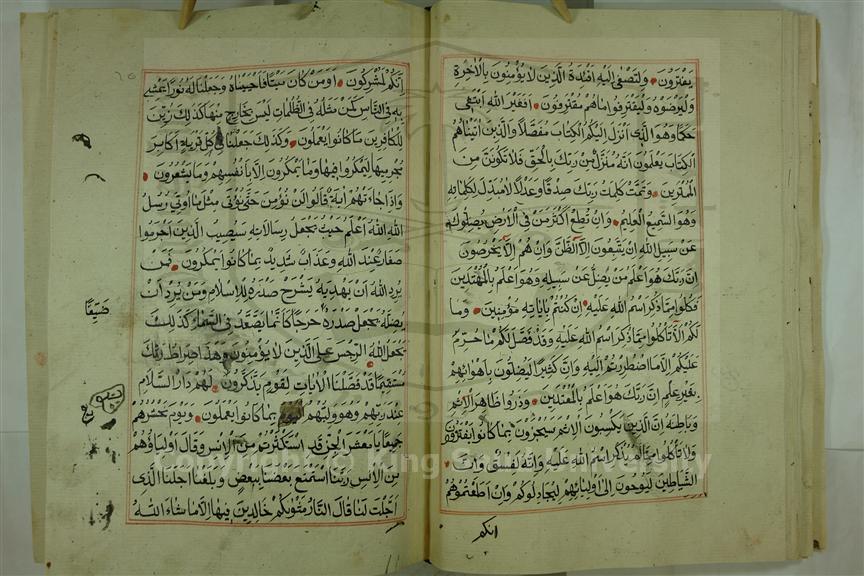 يفترون ولتصغى اليه افئدة الذين لا يؤمنون بالاخرة
وليرضوه وليقترفوا ما هم مقترفون افغير الله ابتغى
حكما وهو الذى انزل اليكم الكتاب مفصلا والذين اتيناهم
الكتاب يعلمون انه منزل من ربك بالحق فلا تكونن من
الممترين وتمت كلمات ربك صدقا وعدلا لا مبدل لكلماته
وهو السميع العليم وان تطع اكثر من فى الارض يضلوك
عن سبيل الله ان يتبعون الا الظن وان هم الا يخرصون
ان ربك هو اعلم من يضل عن سبيله وهو اعلم بالمهتدين
فكلوا مما ذكر اسم الله عليه ان كنتم باياته مؤمنين وما
لكم الا تاكلوا مما ذكر اسم الله عليه وقد فصل لكم ما حرم
عليكم الا ما اضطررتم اليه وان كثيرا ليضلون باهوائهم
بغير علم ان ربك هو اعلم بالمعتدين وذروا ظاهر الاثم
وباطنه ان الذين يكسبون الاثم سيجزون بما كانوا يقترفون
ولا تاكلوا مما لم يذكر اسم الله عليه وانه لفسق وان
الشياطين ليوحون الى اوليائهم ليجادلوكم وان اطعتموهم
انكم
انكم لمشركون اومن كان ميتا فاحييناه وجعلنا له نورا يمشى
به فى الناس كمن مثله فى الظلمات ليس بخارج منها كذلك زين
للكافرين ما كانوا يعملون وكذلك جعلنا فى كل قرية اكابر
مجرميها ليمكروا فيها وما يمكرون الا بانفسهم وما يشعرون
واذا جاءتهم اية قالوا لن نؤمن حتى نؤتى مثل ما اوتى رسل
الله الله اعلم حيث يجعل رسالاته سيصيب الذين اجرموا
صغار عند الله وعذاب شديد بما كانوا يمكرون فمن
يرد الله ان يهديه يشرح صدره للاسلام ومن يرد ان
يضله يجعل صدره حرجا كانما يصعد فى السماء كذلك
ضيقا
يجعل الله الرجس على الذين لا يؤمنون وهذا صراط ربك
مستقيما قد فصلنا الايات لقوم يذكرون لهم دار السلام
عند ربهم وهو وليهم بما كانوا يعملون ويوم يحشرهم
جميعا يا معشر الجن قد استكثرتم من الانس وقال اولياؤهم
من الانس ربنا استمتع بعضنا ببعض وبلغنا اجلنا الذى
اجلت لنا قال النار مثويكم خالدين فيها الا ما شاء الله
Copyright © King Saud University